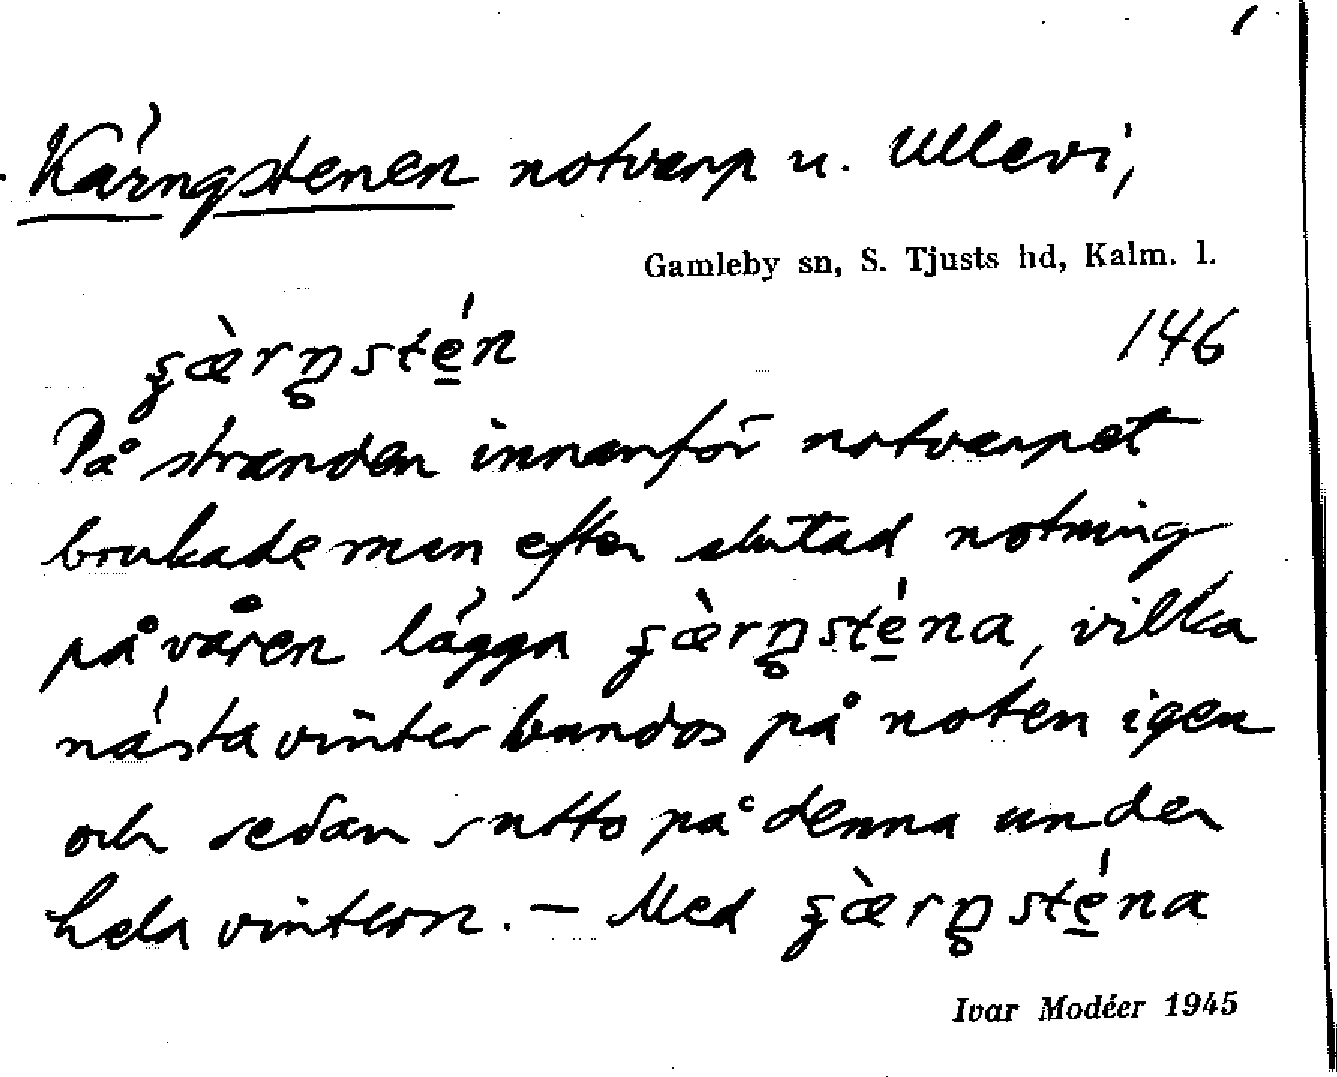 Kärngstenen notvarp u. Ullevi,
Gamleby sn, S. Tjusts hd, Kalm. l.
146
På stranden innanför notvarpet
brukade man efter slutad notning
på våren lägga vilka
nästa vinter bundos på noten igen
och sedan sutto på denna under
hela vintern. – Med
Ivar Modéer 1945